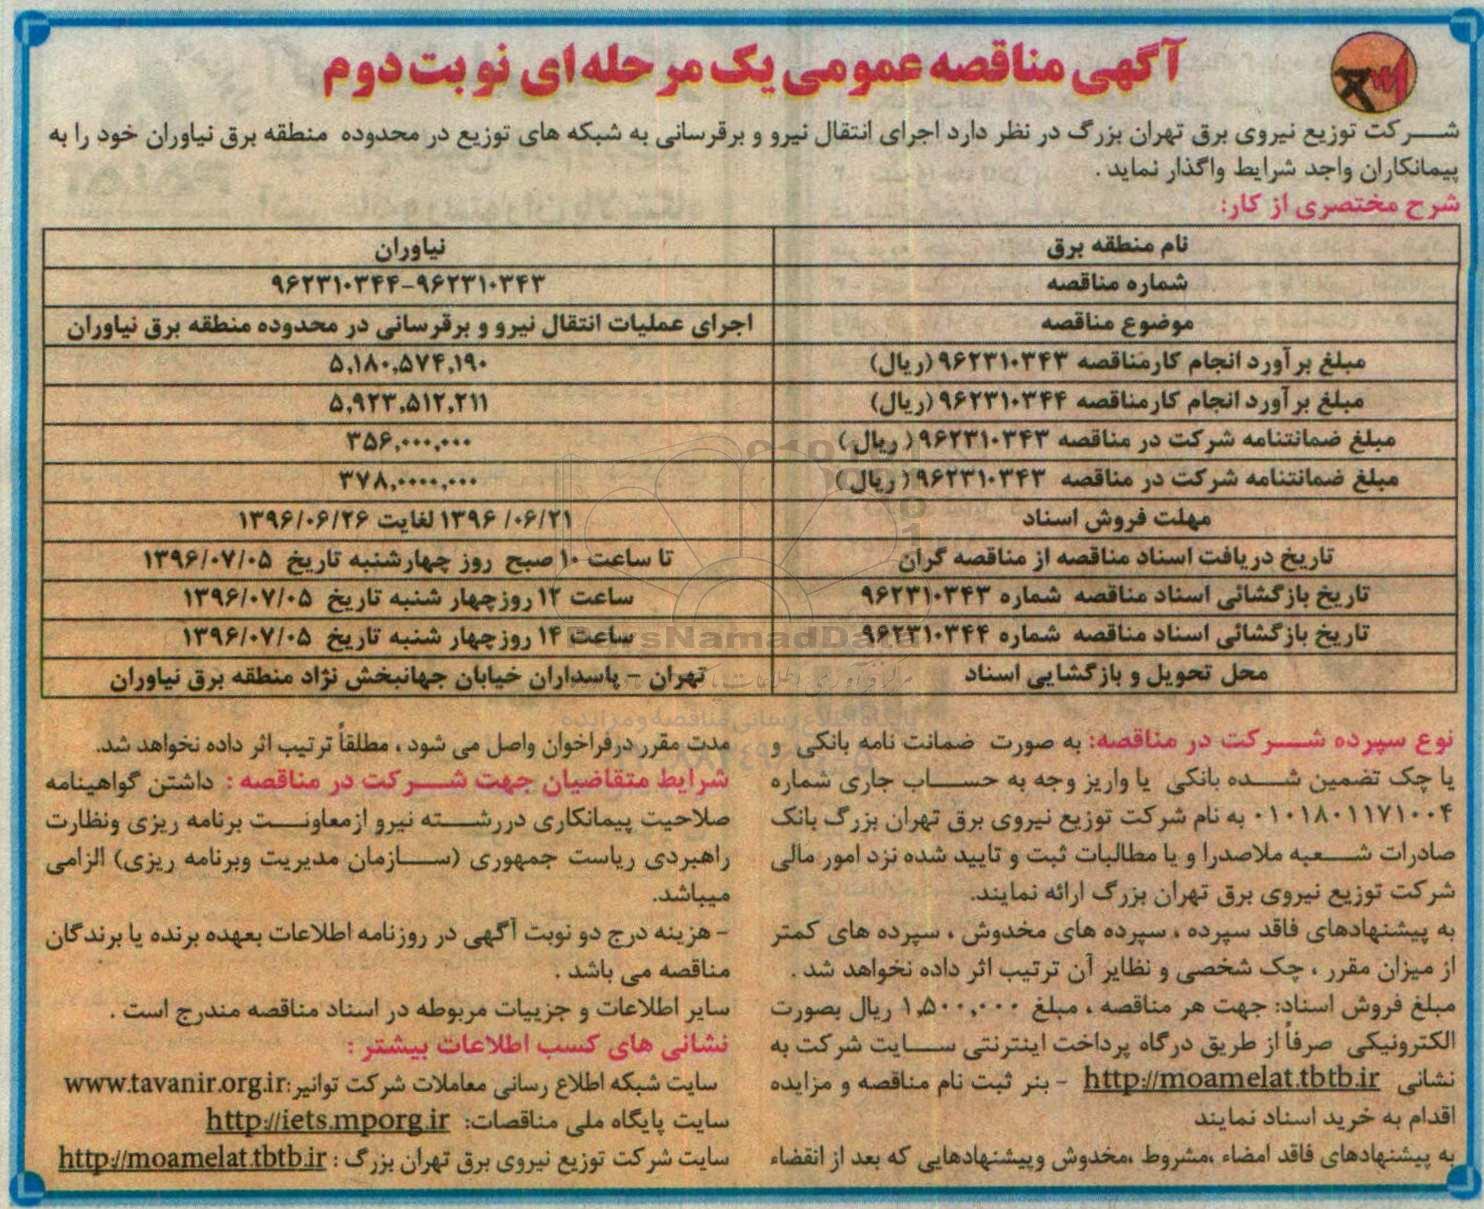 آگهی مناقصه عمومی یک مرحله ای نوبت دوم
شرکت توزیع نیروی برق تهران بزرگ در نظر دارد اجرای انتقال نیرو و برقرسانی به شبکه های توزیع در محدوده منطقه برق نیاوران خود را به
پیمانکاران واجد شرایط واگذار نماید .
شرح مختصری از کار:
نام منطقه برق نیاوران
شماره مناقصه ۹۶۲۳۱۰۳۴۳-۹۶۲۳۱۰۳۴۴
موضوع مناقصه اجرای عملیات انتقال نیرو و برقرسانی در محدوده منطقه برق نیاوران
مبلغ برآورد انجام کارمناقصه ۹۶۲۳۱۰۳۴۳ (ریال) ۵,۱۸۰,۵۷۴,۱۹۰
مبلغ برآورد انجام کارمناقصه ۹۶۲۳۱۰۳۴۴ (ریال) ۵,۹۲۳,۵۱۲,۲۱۱
مبلغ ضمانتنامه شرکت در مناقصه ۹۶۲۳۱۰۳۴۳ ( ریال ) ۳۵۶,۰۰۰,۰۰۰
مبلغ ضمانتنامه شرکت در مناقصه ۹۶۲۳۱۰۳۴۳ ( ریال ) ۳۷۸,۰۰۰۰,۰۰۰
مهلت فروش اسناد ۱۳۹۶ /۰۶/۲۱ لغایت ۱۳۹۶/۰۶/۲۶
تاریخ دریافت اسناد مناقصه از مناقصه گران تا ساعت ۱۰ صبح روز چهارشنبه تاریخ ۱۳۹۶/۰۷/۰۵
تاریخ بازگشائی اسناد مناقصه شماره ۹۶۲۳۱۰۳۴۳ ساعت ۱۲ روزچهار شنبه تاریخ ۱۳۹۶/۰۷/۰۵
تاریخ بازگشائی اسناد مناقصه شماره ۹۶۲۳۱۰۳۴۴ ساعت ۱۴ روزچهار شنبه تاریخ ۱۳۹۶/۰۷/۰۵
محل تحویل و بازگشایی اسناد تهران – پاسداران خیابان جهانبخش نژاد منطقه برق نیاوران
ParsNamadData
پایگاه اطلاع رسانی مناقصه و مزایده
نوع سپرده شرکت در مناقصه: به صورت ضمانت نامه بانکی و
یا چک تضمین شده بانکی یا واریز وجه به حساب جاری شماره
۰۱۰۱۸۰۱۱۷۱۰۰۴ به نام شرکت توزیع نیروی برق تهران بزرگ بانک
صادرات شعبه ملاصدرا و یا مطالبات ثبت و تایید شده نزد امور مالی
شرکت توزیع نیروی برق تهران بزرگ ارائه نمایند.
به پیشنهادهای فاقد سپرده ، سپرده های مخدوش ، سپرده های کمتر
از میزان مقرر ، چک شخصی و نظایر آن ترتیب اثر داده نخواهد شد .
مبلغ فروش اسناد: جهت هر مناقصه ، مبلغ ۱,۵۰۰,۰۰۰ ریال بصورت
الکترونیکی صرفاً از طریق درگاه پرداخت اینترنتی سایت شرکت به
نشانی http://moamelat.tbtb.ir - بنر ثبت نام مناقصه و مزایده
اقدام به خرید اسناد نمایند
به پیشنهادهای فاقد امضاء ،مشروط ،مخدوش وپیشنهادهایی که بعد از انقضاء
مدت مقرر درفراخوان واصل می شود ، مطلقاً ترتیب اثر داده نخواهد شد.
شرایط متقاضیان جهت شرکت در مناقصه : داشتن گواهینامه
صلاحیت پیمانکاری دررشته نیرو ازمعاونت برنامه ریزی ونظارت
راهبردی ریاست جمهوری (سازمان مدیریت وبرنامه ریزی) الزامی
میباشد.
- هزینه درج دو نوبت آگهی در روزنامه اطلاعات بعهده برنده یا برندگان
مناقصه می باشد .
سایر اطلاعات و جزییات مربوطه در اسناد مناقصه مندرج است .
نشانی های کسب اطلاعات بیشتر :
سایت شبکه اطلاع رسانی معاملات شرکت توانیر:www.tavanir.org.ir
سایت پایگاه ملی مناقصات: http://iets.mporg.ir
سایت شرکت توزیع نیروی برق تهران بزرگ : http://moamelat.tbtb.ir